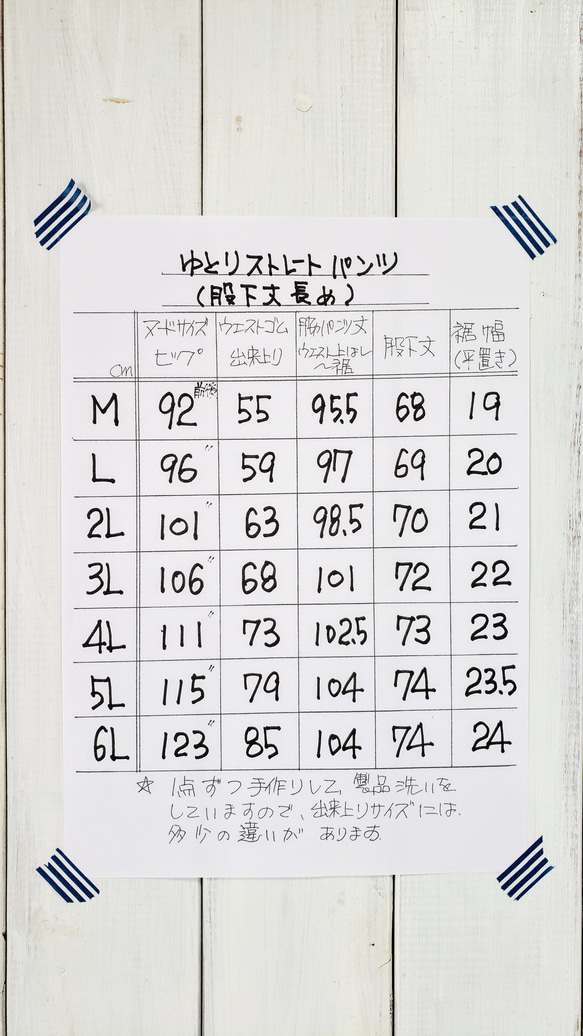 ゆとりストレートパンツ
(股下丈長め)
cm ヌードサイズ ヒップ ウエストゴム 出来上り 脇パンツ丈 ウエスト上はし〜裾 股下丈 裾幅 (平置き)
M 92前後 55 95.5 68 19
L 96〃 59 97 69 20
2L 101〃 63 98.5 70 21
3L 106〃 68 101 72 22
4L 111〃 73 102.5 73 23
5L 115〃 79 104 74 23.5
6L 123〃 85 104 74 24
☆ 1点ずつ手作りして、製品洗いを
していますので、出来上りサイズには、
多少の違いが あります。